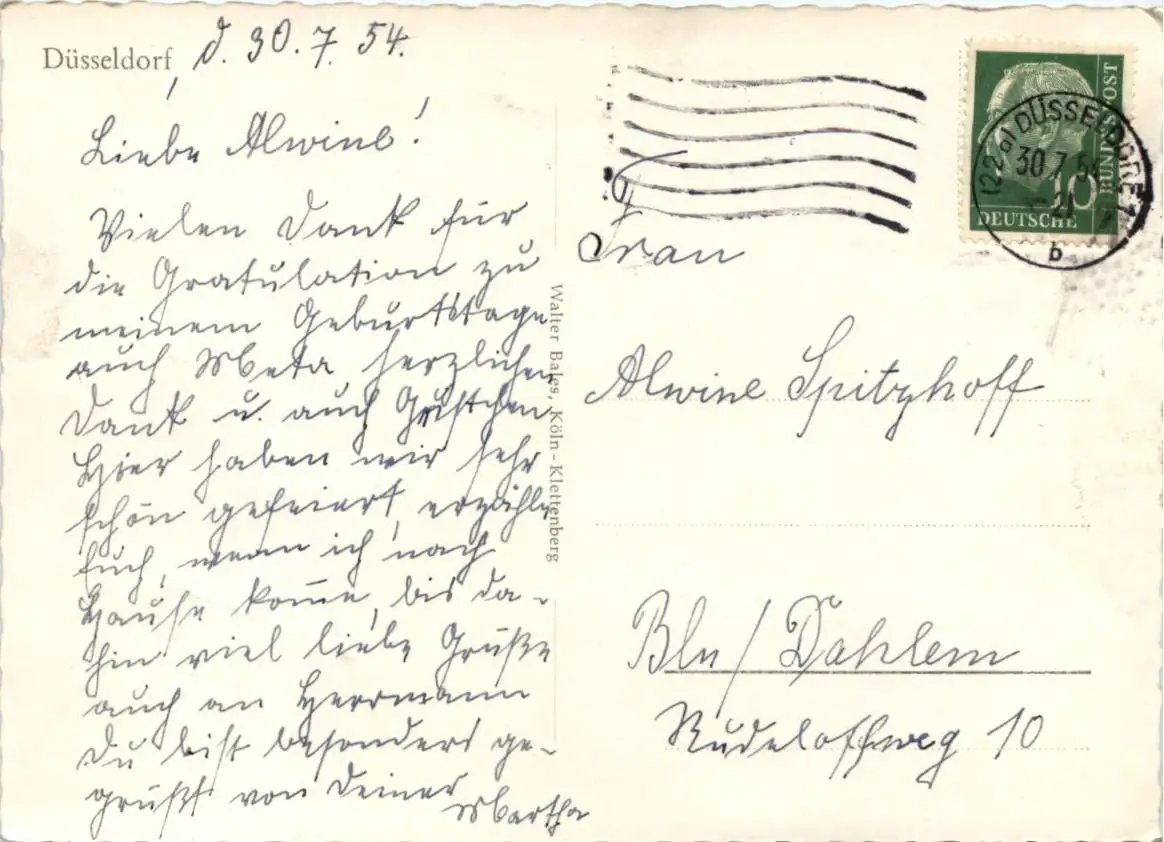 Düsseldorf, d. 30.7.54.
Liebe Alwine!
Vielen Dank für
die Gratulation zu
meinem Geburtstage
auch Meta herzlichen
Dank u. auch
Hier haben wir sehr
schön gefeiert, erzähle
Euch, wenn ich nach
Hause kom̅e, bis da-
hin viel liebe Grüße
auch an Herrmann
Du bist besonders ge-
grüßt von Deiner
Martha
Walter Bales, Köln-Klettenberg
Frau
Alwine Spitzhoff
Bln/Dahlem
Rudeloffweg 10
DEUTSCHE
BUNDESPOST
10
DÜSSELDORF
30.7.54
b